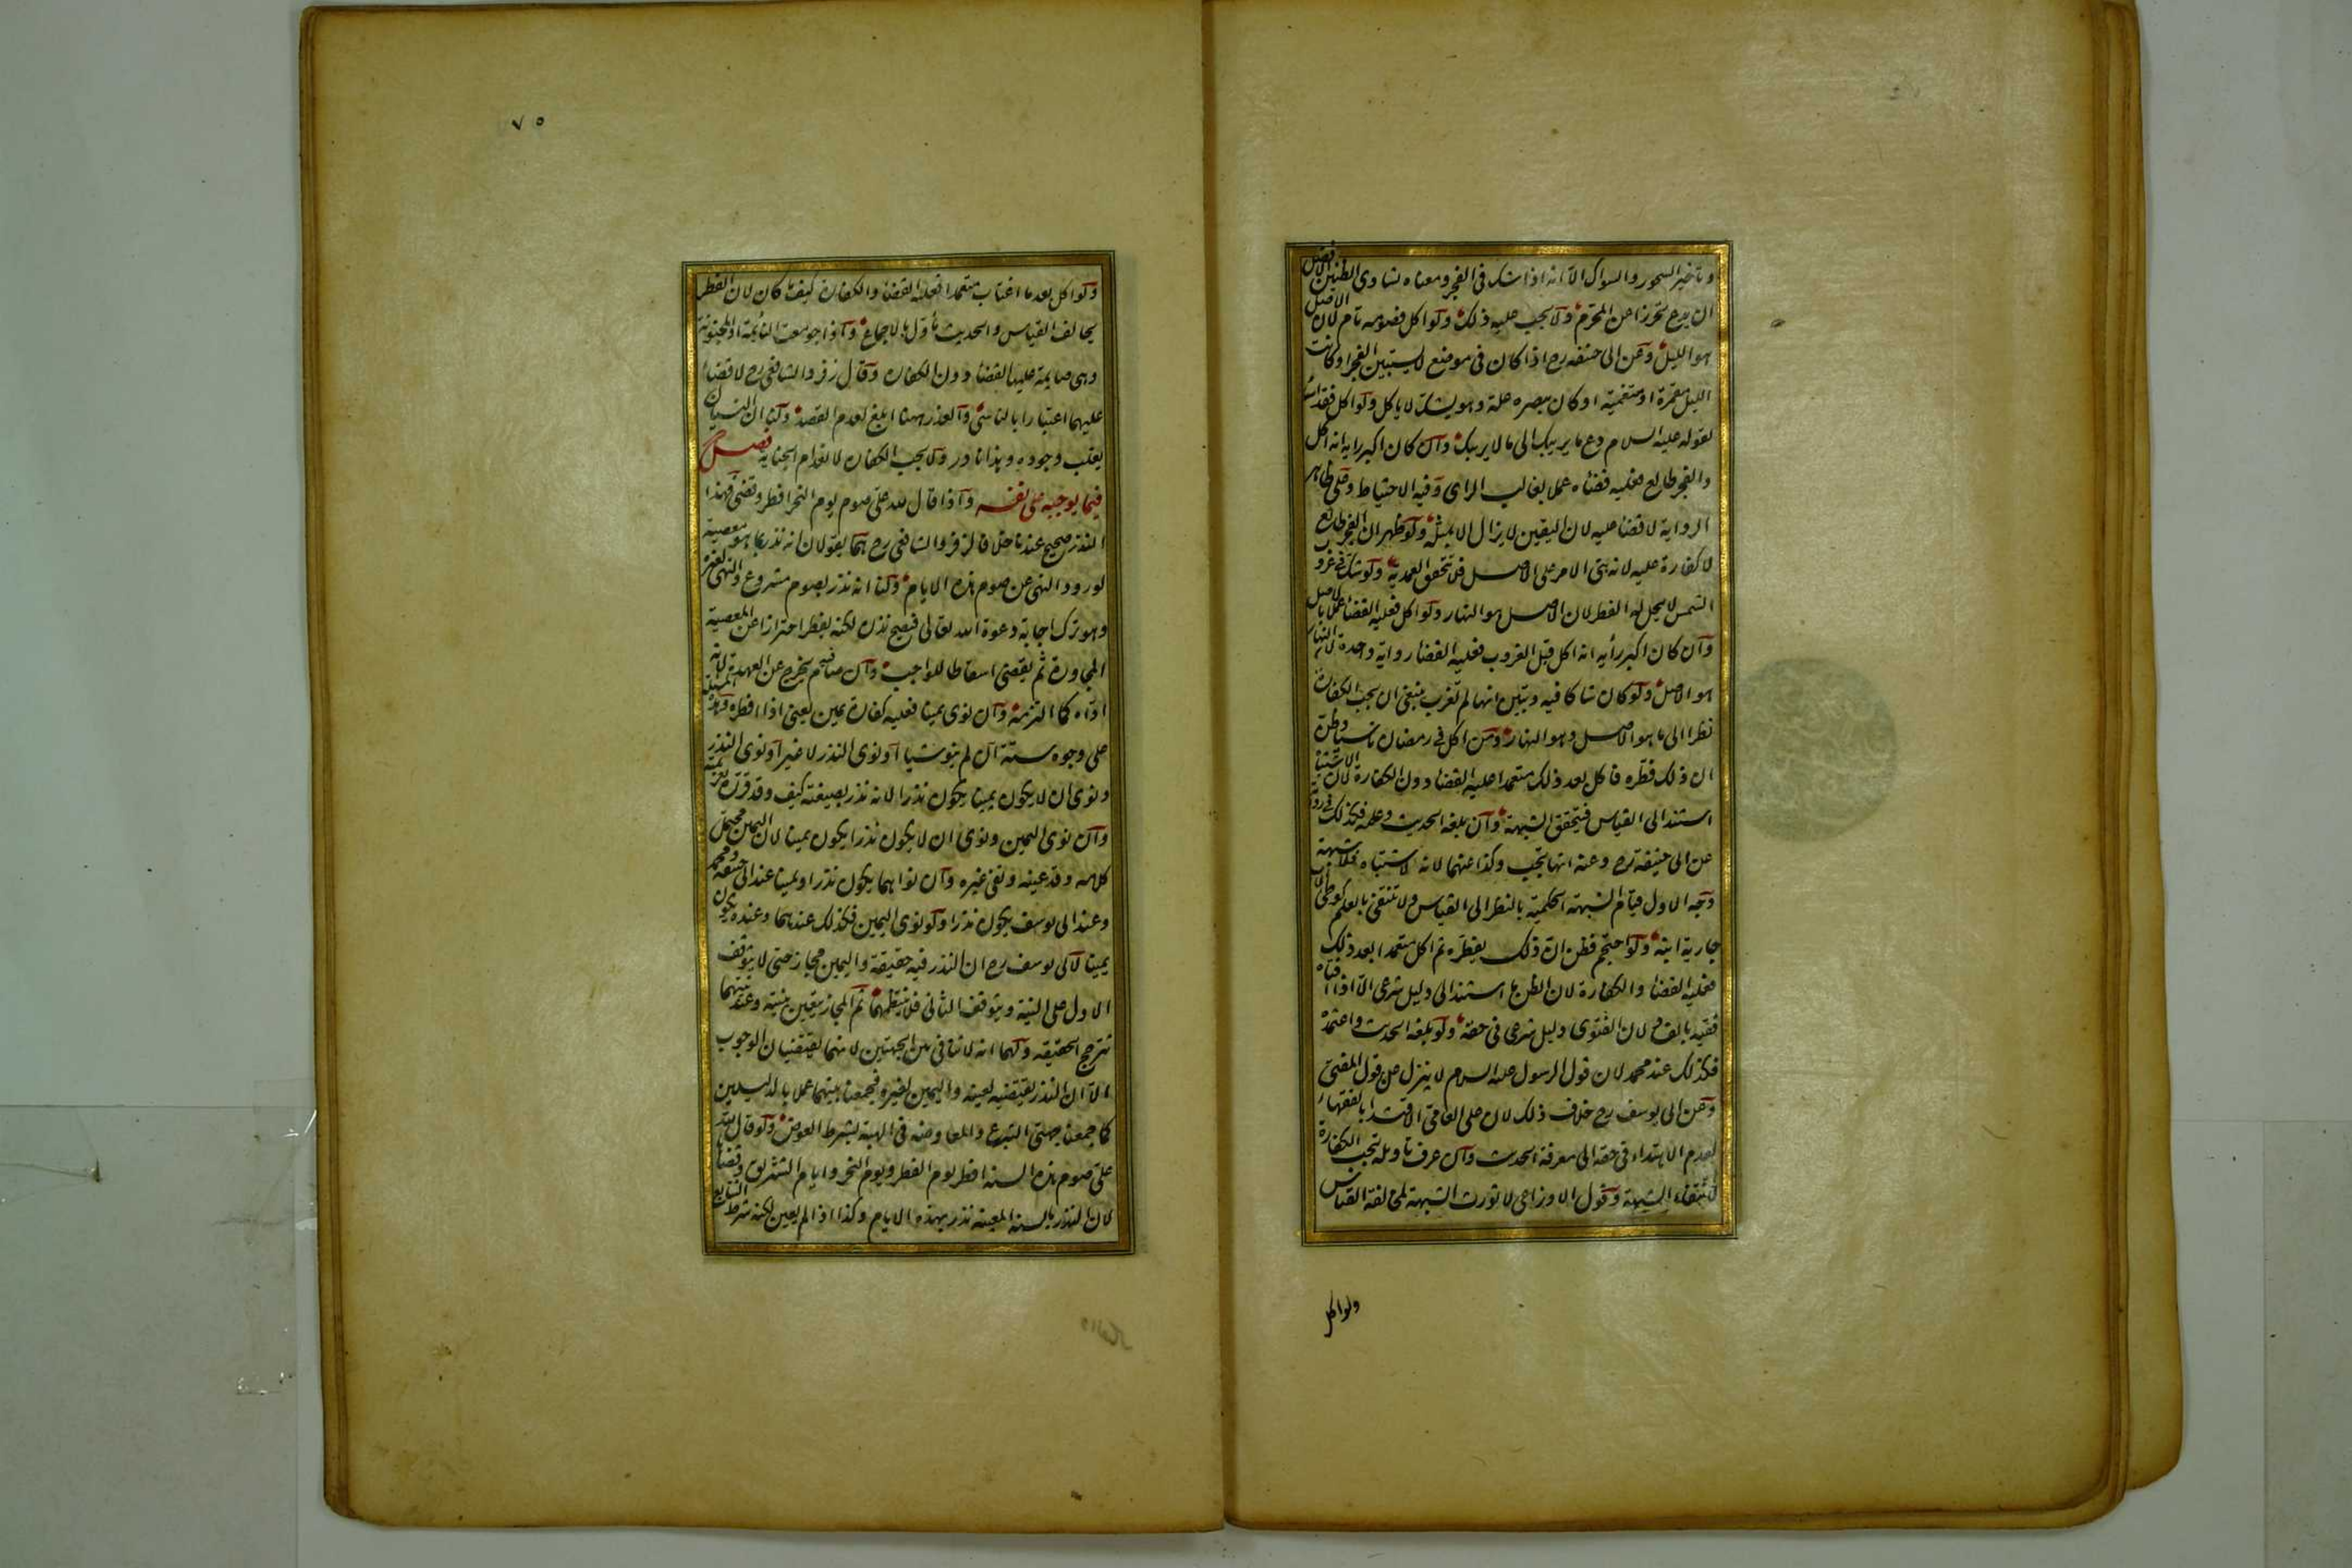 وتأخير السحور والسواك الا انه اذا شك فى الفجر ومعناه تساوى الظنين الافضل
ان يدع تحرزا عن المحرم ولا يجب عليه ذلك ولو اكل فصومه تام لان الاصل
هو الليل وعن ابى حنيفه رح اذا كان فى موضع لا يستبين الفجر او كانت
الليل مقمرة او متغيمة او كان ببصره علة وهو يشك لا ياكل ولو اكل فقد اساء
لقوله عليه السلام دع ما يريبك الى ما لا يريبك وان كان اكبر رايه انه اكل
والفجر طالع فعليه قضاه عملا بغالب الراى وفيه الاحتياط وعلى ظاهر
الرواية لا قضا عليه لان اليقين لا يزال الا بمثله ولو ظهر ان الفجر طالع
لا كفارة عليه لانه بنى الامر على الاصل فلا تتحقق العمدية ولو شك فى غروب
الشمس لا يحل له الفطر لان الاصل هو النهار ولو اكل فعليه القضا عملا بالاصل
وان كان اكبر رأيه انه اكل قبل الغروب فعليه القضا رواية واحدة لان النهار
هو الاصل ولو كان شاكا فيه وتبين انها لم تغرب ينبغى ان يجب الكفارة
نظرا الى ما هو الاصل وهو النهار ومن اكل فى رمضان ناسيا وظن
ان ذلك فطره فاكل بعد ذلك متعمدا عليه القضا دون الكفارة لان الاشتباه
استند الى القياس فيتحقق الشبهة وان بلغه الحديث وعلمه فكذلك فى رواية
عن ابى حنيفه رح وعنه انها تجب وكذا عنهما لانه لا اشتباه فلا شبهة
وجه الاول قيام الشبهة الحكمية بالنظر الى القياس ولا تنتفى بالعلم كوطى الاب
جارية ابنه ولو احتجم فظن ان ذلك يفطره ثم اكل متعمدا بعد ذلك
فعليه القضا والكفارة لان الظن ما استند الى دليل شرعى الا اذا افتاه
فقيه بالفساد لان الفتوى دليل شرعى فى حقه ولو بلغه الحديث واعتمده
فكذلك عند محمد لان قول الرسول عليه السلام لا ينزل عن قول المفتى
وعن ابى يوسف رح خلاف ذلك لان على العامى الاقتدا بالفقهاء
لعدم الاهتداء فى حقه الى معرفة الحديث وان عرف تاويله تجب الكفارة
لانتفاء الشبهة وقول الاوزاعى لا تورث الشبهة لمخالفة القياس
ولو اكل
٧٥
ولو اكل بعد ما اغتاب متعمدا فعليه القضا والكفارة كيف ما كان لان الفطر
يخالف القياس والحديث مأول بالاجماع واذا جومعت النائمة او المجنونة
وهى صايمة عليها القضا دون الكفارة وقال زفر والشافعى رح لا قضاء
عليهما اعتبارا بالناسى والعذر ههنا ابلغ لعدم القصد ولنا ان النسيان
يغلب وجوده وهذا نادر ولا يجب الكفارة لانعدام الجناية فصل
فيما يوجبه على نفسه واذا قال لله على صوم يوم النحر افطر وقضى فهذا
النذر صحيح عندنا خلافا لزفر والشافعى رح هما يقولان انه نذر بما هو معصية
لورود النهى عن صوم هذه الايام ولنا انه نذر بصوم مشروع والنهى لغيره
وهو ترك اجابة دعوة الله تعالى فيصح نذره لكنه يفطر احترازا عن المعصية
المجاورة ثم يقضى اسقاطا للواجب وان صام فيه يخرج عن العهدة لانه
اداه كما التزمه وان نوى يمينا فعليه كفارة يمين يعنى اذا افطر وهذه المسئلة
على وجوه ستة ان لم ينو شيا او نوى النذر لا غير او نوى النذر
ونوى ان لا يكون يمينا يكون نذرا لانه نذر بصيغته كيف وقد قرره بعزيمته
وان نوى اليمين ونوى ان لا يكون نذرا يكون يمينا لان اليمين محتمل
كلامه وقد عينه ونفى غيره وان نواهما يكون نذرا ويمينا عند ابى حنيفه ومحمد
وعند ابى يوسف يكون نذرا ولو نوى اليمين فكذلك عندهما وعنده يكون
يمينا لابى يوسف رح ان النذر فيه حقيقة واليمين مجاز حتى لا يتوقف
الاول على النية ويتوقف الثانى فلا ينتظمهما ثم المجاز يتعين بنيته وعند نيتهما
تترجح الحقيقه ولهما انه لا تنافى بين الجهتين لانهما يقتضيان الوجوب
الا ان النذر يقتضيه لعينه واليمين لغيره فجمعنا بينهما عملا بالدليلين
كما جمعنا جهتى التبرع والمعاوضه فى الهبة بشرط العوض ولو قال لله
على صوم هذه السنه افطر يوم الفطر ويوم النحر وايام التشريق وقضاها
لان النذر بالسنه المعينه نذر بهذه الايام وكذا اذا لم يعين لكنه شرط التتابع